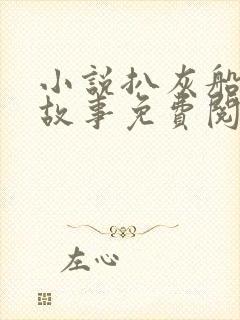 小說扒灰船
故事免費閱
左心